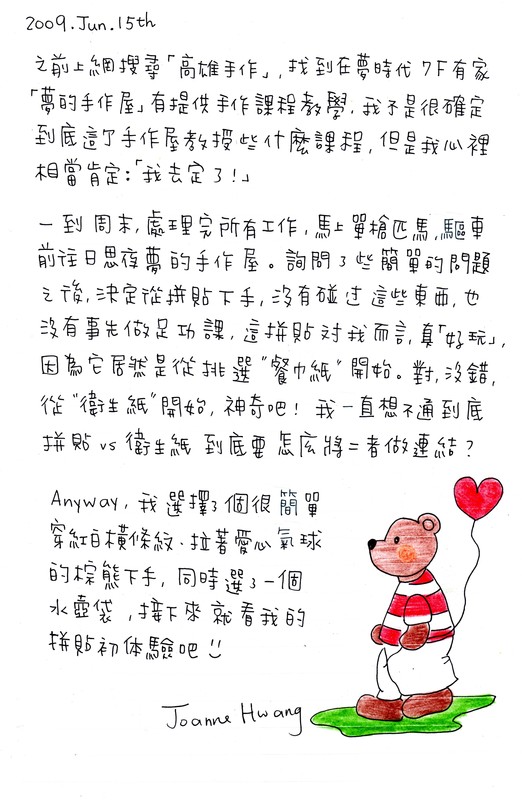 2009.Jun.15th
之前上網搜尋「高雄手作」,找到在夢時代7F有家
「夢的手作屋」有提供手作課程教學,我不是很確定
到底這了手作屋教授些什麼課程,但是我心裡
相當肯定:「我去定了!」
一到周末,處理完所有工作,馬上單槍匹馬,驅車
前往日思夜夢的手作屋。詢問了些簡單的問題
之後,決定從拼貼下手,沒有碰过這些東西,也
沒有事先做足功課,這拼貼對我而言,真「好玩」,
因為它居然是從挑選"餐巾紙"開始。對,沒錯,
從"衛生紙"開始,神奇吧!我一直想不通到底
拼貼 vs 衛生紙 到底要怎么將二者做連結?
Anyway,我選擇了個很簡單
穿紅白橫條紋、拉著愛心氣球
的棕熊下手,同時選了一個
水壺袋,接下來就看我的
拼貼初体驗吧!!
Joanne Hwang